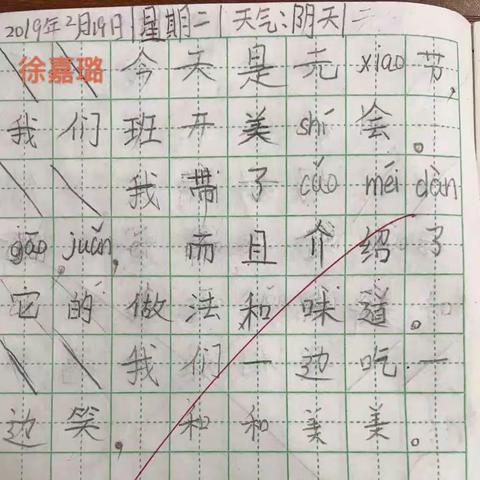 2019年2月19日 星期二 天气:阴天
徐嘉璐
今天是元xiāo节,
我们班开美shí会。
我带了cǎo méi dàn
gāo,juǎn,而且介绍了
它的做法和味道。
我们一边吃一
边笑,和和美美。